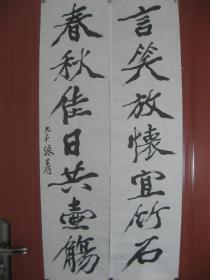 言笑放懷宜竹石
春秋佳日共壺觴
大千張爰